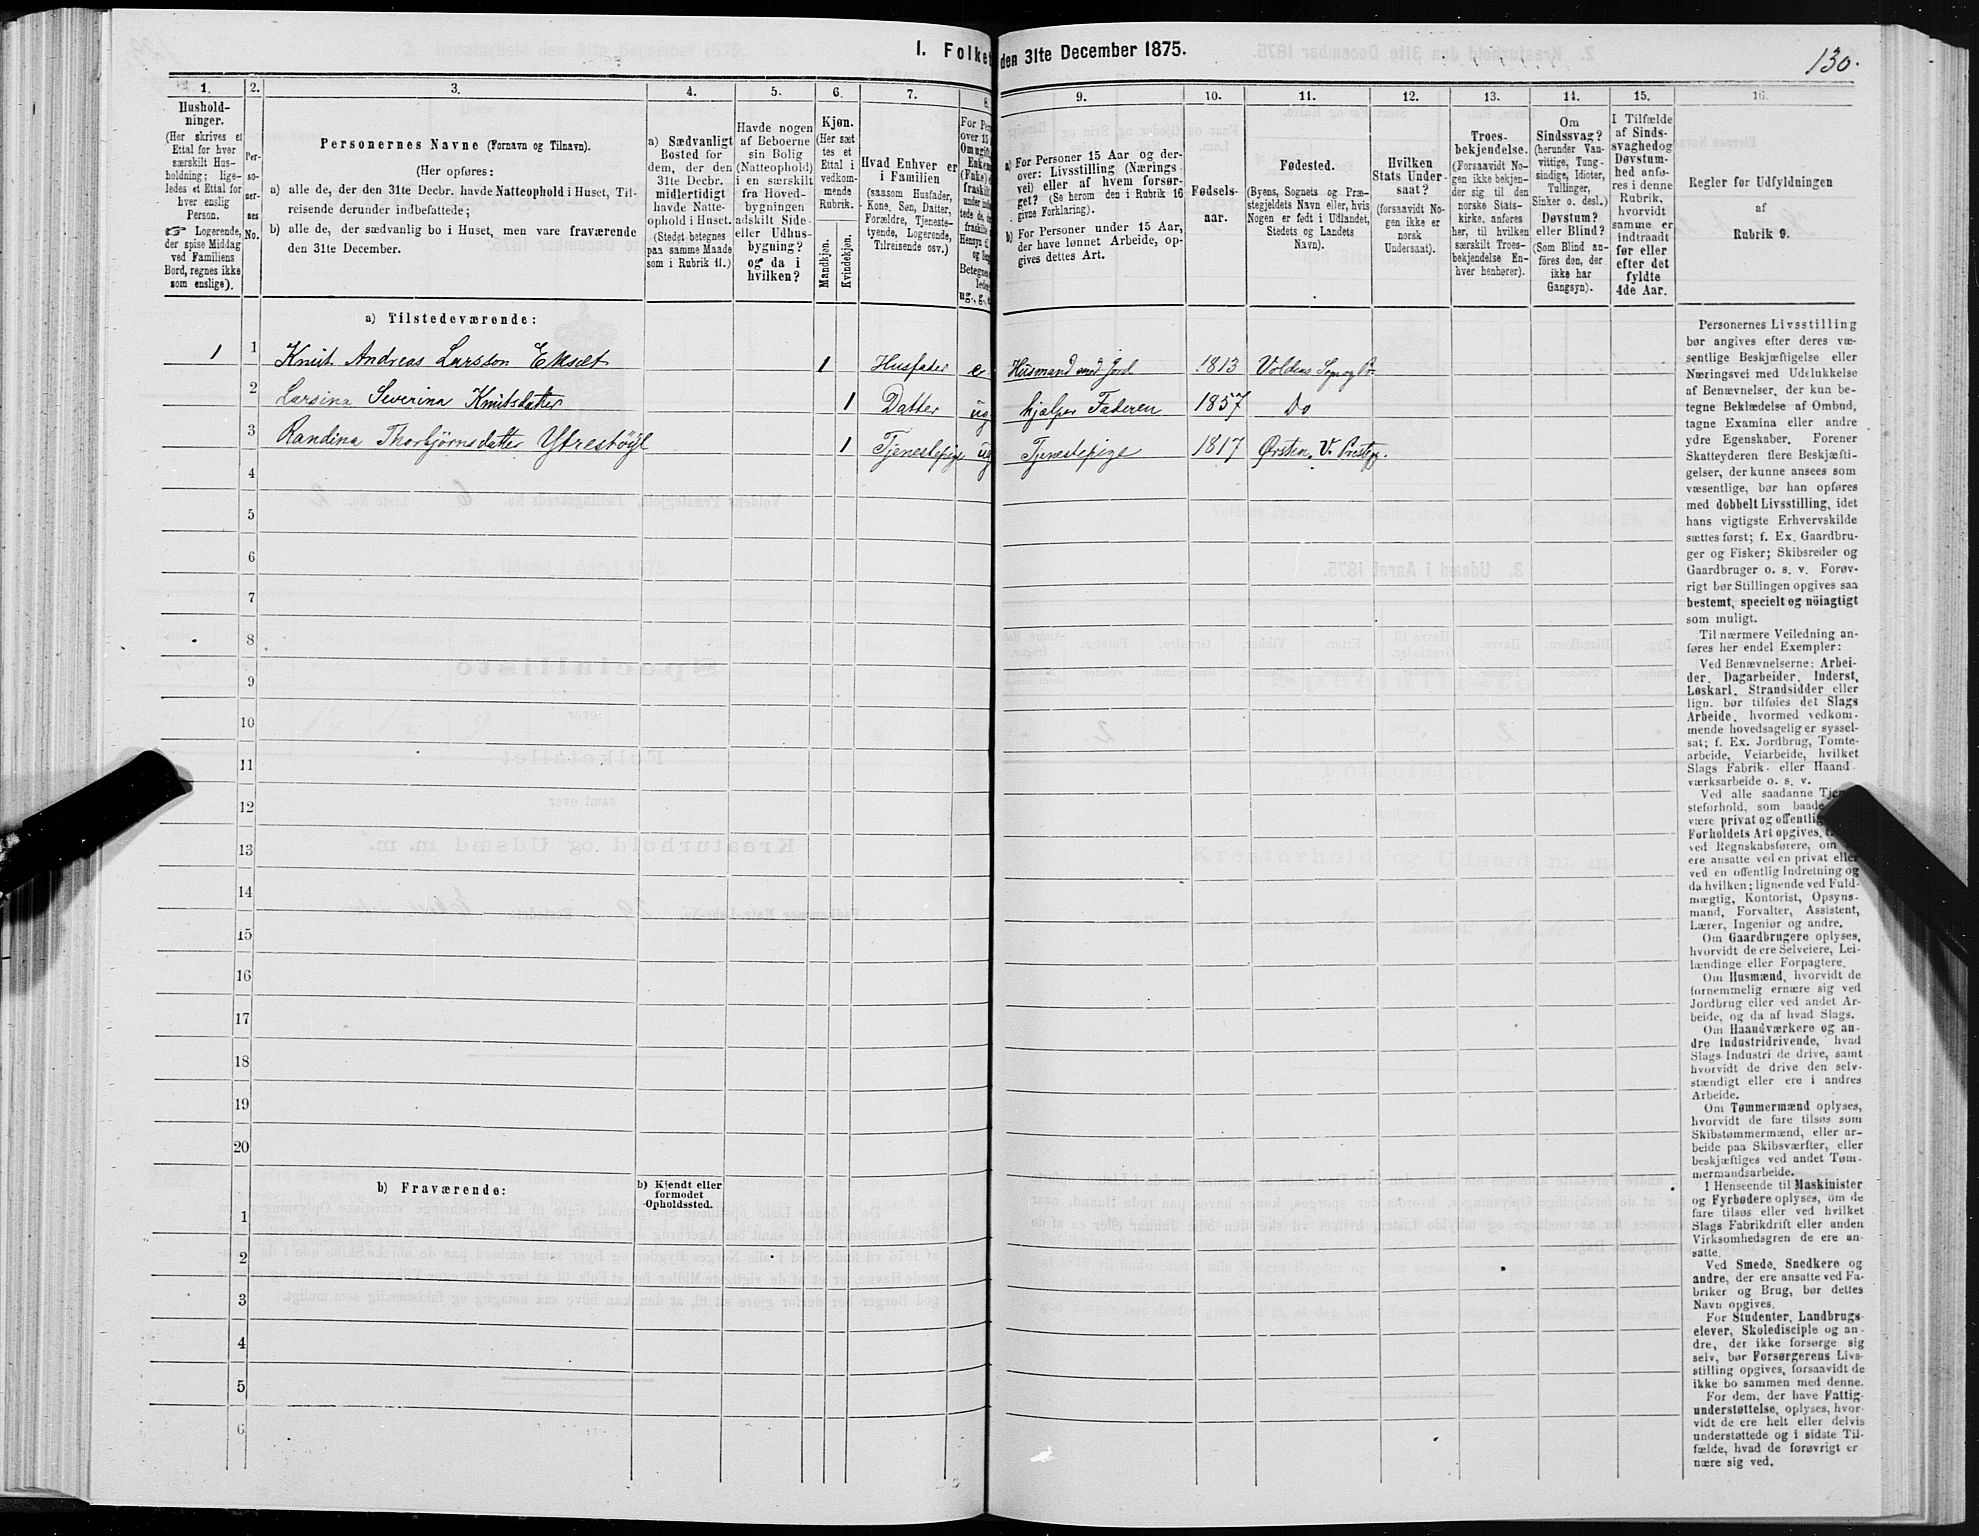 I. Folke
den 31te December 1875.
130.
1.
Hushold-
ninger.
(Her skrives et
Ettal for hver
særskilt Hus-
holdning; lige-
ledes et Ettal for
hver enslig
Person.
☞ Logerende,
der spise Middag
ved Familiens
Bord, regnes ikke
som enslige).
2.
Per-
so-
ner-
nes
No.
3.
Personernes Navne (Fornavn og Tilnavn).
(Her opføres:
a) alle de, der den 31te Decbr. havde Natteophold i Huset, Til-
reisende derunder indbefattede;
b) alle de, der sædvanlig bo i Huset, men vare fraværende
den 31te December.
4.
a) Sædvanligt
Bosted for
dem, der den
31te Decbr.
midlertidigt
havde Natte-
ophold i Huset.
(Stedet betegnes
paa samme Maade
som i Rubrik 11.)
5.
Havde nogen
af Beboerne
sin Bolig
(Natteophold)
i en særskilt
fra Hoved-
bygningen
adskilt Side-
eller Udhus-
bygning?
og da i
hvilken?
6.
Kjøn.
(Her sæt-
tes et
Ettal i
vedkom-
mende
Rubrik.
Mandkjøn.
Kvindekjøn.
7.
Hvad Enhver er
i Familien
(saasom Husfader,
Kone, Søn, Datter,
Forældre, Tjeneste-
tyende, Logerende,
Tilreisende osv.)
8.
For Per
over 15
Om ugift
Enkem
(Enke)
fraskilt
under
tede
fraskilt
Hensyn
og Seng
Betegnes
leder
ug., g.,
9.
a) For Personer 15 Aar og der-
over: Livsstilling (Nærings-
vei) eller af hvem forsør-
get? (Se herom den i Rubrik 16
givne Forklaring).
b) For Personer under 15 Aar,
der have lønnet Arbeide, op-
gives dettes Art.
10.
Fødsels-
aar.
11.
Fødested.
(Byens, Sognets og Præ-
stegjeldets Navn eller, hvis
Nogen er født i Udlandet,
Stedets og Landets
Navn).
12.
Hvilken
Stats Under-
saat?
(forsaavidt No-
gen ikke er
norsk
Undersaat).
13.
Troes-
bekjendelse.
(Forsaavidt No-
gen ikke bekjen-
der sig til den
norske Stats-
kirke, anføres
her, til hvilken
særskilt Troes-
bekjendelse En-
hver henhører).
14.
Om
Sindssvag?
(herunder Van-
vittige, Tung-
sindige, Idioter,
Tullinger,
Sinker o. desl.)
Døvstum?
eller Blind?
(Som Blind an-
føres den, der
ikke har
Gangsyn).
15.
I Tilfælde
af Sinds-
svaghed og
Døvstum-
hed anfø-
res i denne
Rubrik,
hvorvidt
samme er
indtraadt
før eller
efter det
fyldte
4de Aar.
16.
Regler før Udfyldningen
af
Rubrik 9.
a) Tilstedeværende:
1 1 Knut Andreas Larsson Eksæt 1 Husfader e Husmand med Jord 1813 Voldens Sogn og Pr.
2 Larsina Severina Knutsdatter 1 Datter ug hjælper Faderen 1857 Do
3 Randina Thorbjørnsdatter Yfrestøyl 1 Tjenestepige ug Tjenestepige 1817 Ørsten, V. Prestegj.
4
5
6
7
8
9
10
11
12
13
14
15
16
17
18
19
20
b) Fraværende:
b) Kjendt eller
formodet
Opholdssted.
1
2
3
4
5
6
Personernes Livsstilling
bør angives efter deres væ-
sentlige Beskjæftigelse eller
Næringsvei med Udelukkelse
af Benævnelser, der kun be-
tegne Beklædelse af Ombud,
tagne Examina eller andre
ydre Egenskaber. Forener
Skatteyderen flere Beskjæfti-
gelser, der kunne ansees som
væsentlige, bør han opføres
med dobbelt Livsstilling, idet
hans vigtigste Erhvervskilde
sættes først; f. Ex. Gaardbru-
ger og Fisker; Skibsreder og
Gaardbruger o. s. v. Forøv-
rigt bør Stillingen opgives saa
bestemt, specielt og nöiagtigt
som muligt.
Til nærmere Veiledning an-
føres her endel Exempler:
Ved Benævnelserne: Arbei-
der, Dagarbeider, Inderst,
Løskarl, Strandsidder eller
lign. bør tilføies det Slags
Arbeide, hvormed vedkom-
mende hovedsagelig er syssel-
sat; f. Ex. Jordbrug, Tomte-
arbeide, Veiarbeide, hvilket
Slags Fabrik- eller Haand-
værksarbeide o. s. v.
Ved alle saadanne
steforhold, som baade
være privat og offentlig
Forholdets Art opgives,
ved Regnskabsførere, om
ere ansatte ved en privat eller
ved en offentlig Indretning og
da hvilken; lignende ved Fuld-
mægtig, Kontorist, Opsyns-
mand, Forvalter, Assistent,
Lærer, Ingeniør og andre.
Om Gaardbrugere oplyses,
hvorvidt de ere Selveiere, Lei-
lændinge eller Forpagtere.
Om Husmænd, hvorvidt de
fornemmelig ernære sig ved
Jordbrug eller ved andet Ar-
beide, og da af hvad Slags.
Om Haandværkere og an-
dre Industridrivende, hvad
Slags Industri de drive, samt
hvorvidt de drive den selv-
stændigt eller ere i andres
Arbeide.
Om Tømmermænd oplyses,
hvorvidt de fare tilsøs som
Skibstømmermænd, eller ar-
beide paa Skibsværfter, eller
beskjæftiges ved andet Tøm-
mermandsarbeide.
I Henseende til Maskinister
og Fyrbødere oplyses, om de
fare tilsøs eller ved hvilket
Slags Fabrikdrift eller anden
Virksomhedsgren de ere an-
satte.
Ved Smede, Snedkere og
andre, der ere ansatte ved Fa-
briker og Brug, bør dettes
Navn opgives.
For Studenter, Landbrugs-
elever, Skoledisciple og an-
dre, der ikke forsørge sig
selv, bør Forsørgerens Livs-
stilling opgives, forsaavidt de
ikke bo sammen med denne.
For dem, der have Fattig-
understøttelse, oplyses, hvor-
vidt de ere helt eller delvis
understøttede og i sidste Til-
fælde, hvad de forøvrigt er
nære sig ved.